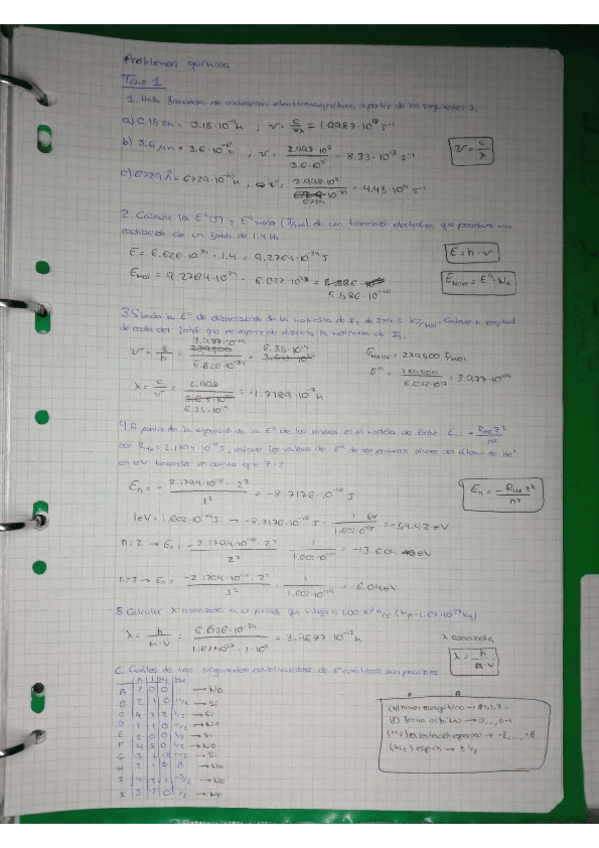 Problemas química
TEMA 1
1. Halla frecuencia de radiación electromagnética a partir de los siguientes λ.
a) 0.15 nm = 0.15·10⁻⁹ m ; ν = c/λ = 1.9987·10¹⁸ s⁻¹
ν = c/λ
b) 3.6 μm = 3.6·10⁻⁶ m , ν = 2.998·10⁸ / 3.6·10⁻⁶ = 8.33·10¹³ s⁻¹
c) 6729 Å = 6729·10⁻¹⁰ m ; ν = 2.998·10⁸ / = 4.45·10¹⁴ s⁻¹
2. Calcule la Eª (J) y Eª molar (J/mol) de una transición electrónica que produce una
radiación de un fotón de 1.4 Hz.
E = 6.626·10⁻³⁴ · 1.4 = 9.2764·10⁻³⁴ J
E = h·ν
E mol = 9.2764·10⁻³⁴ · 6.022·10²³ =
5.586·10⁻¹⁰
E molar = Eª·Nₐ
3. Siendo la Eª de disociación de la molécula de I₂ de KJ/mol. Calcula la longitud
de onda del fotón que es capaz de disociar la molécula de I₂.
ν = E/h = 3.977·10⁻¹⁹ / 6.626·10⁻³⁴ =
E molar = 239500 J/mol
Eª = 239500 / 6.022·10²³ = 3.977·10⁻¹⁹
λ = c/ν = 2.998 /
4. A partir de la expresión de la Eª de los niveles en el modelo de Bohr Eₙ = - R_He Z²/n²
con R_He = 2.1794·10⁻¹⁸ J, calcule los valores de Eª de los primeros niveles del átomo de He⁺
en eV teniendo en cuenta que Z=2
Eₙ = - 2.1794·10⁻¹⁸ · 2² / 1² = -8.7176·10⁻¹⁸ J
Eₙ = - R_He Z²/n²
1eV = 1.602·10⁻¹⁹ J → -8.7176·10⁻¹⁸ J · 1 eV / 1.602·10⁻¹⁹ J = -54.42 eV
n=2 → Eₙ = - 2.1794·10⁻¹⁸ · 2² / 2² · 1 / 1.602·10⁻¹⁹ = -13.604 eV
n=3 → Eₙ = -2.1794·10⁻¹⁸ 2² / 3² · 1 / 1.602·10⁻¹⁹ = -6.04 eV
5. Calcular λ asociada a un protón que viaja a 1.00·10³ m/s (Mp = 1.67·10⁻²⁷ Kg)
λ = h / m·v = 6.626·10⁻³⁴ / 1.67·10⁻²⁷ · 1·10³ =
λ asociada,
λ = h / m·v
6. Cuáles de las siguientes combinaciones de nº cuánticos son posibles
n l
A 2 0 0 → No
B 2 1 0 1/2 → Si
C 4 3 2 1/2 → Si
D 1 1 0 → No
E 2 0 0 1/2 → Si
F 4 5 0 1/2 → No
G 3 → Si
H 2 → No
I 4 → No
X 3 → No
(n) nivel energético → 0,1,2,3...
(l) forma orbital → 0,...,n-1
(m) orientación espacial → -l,...,+l
espín → ± 1/2